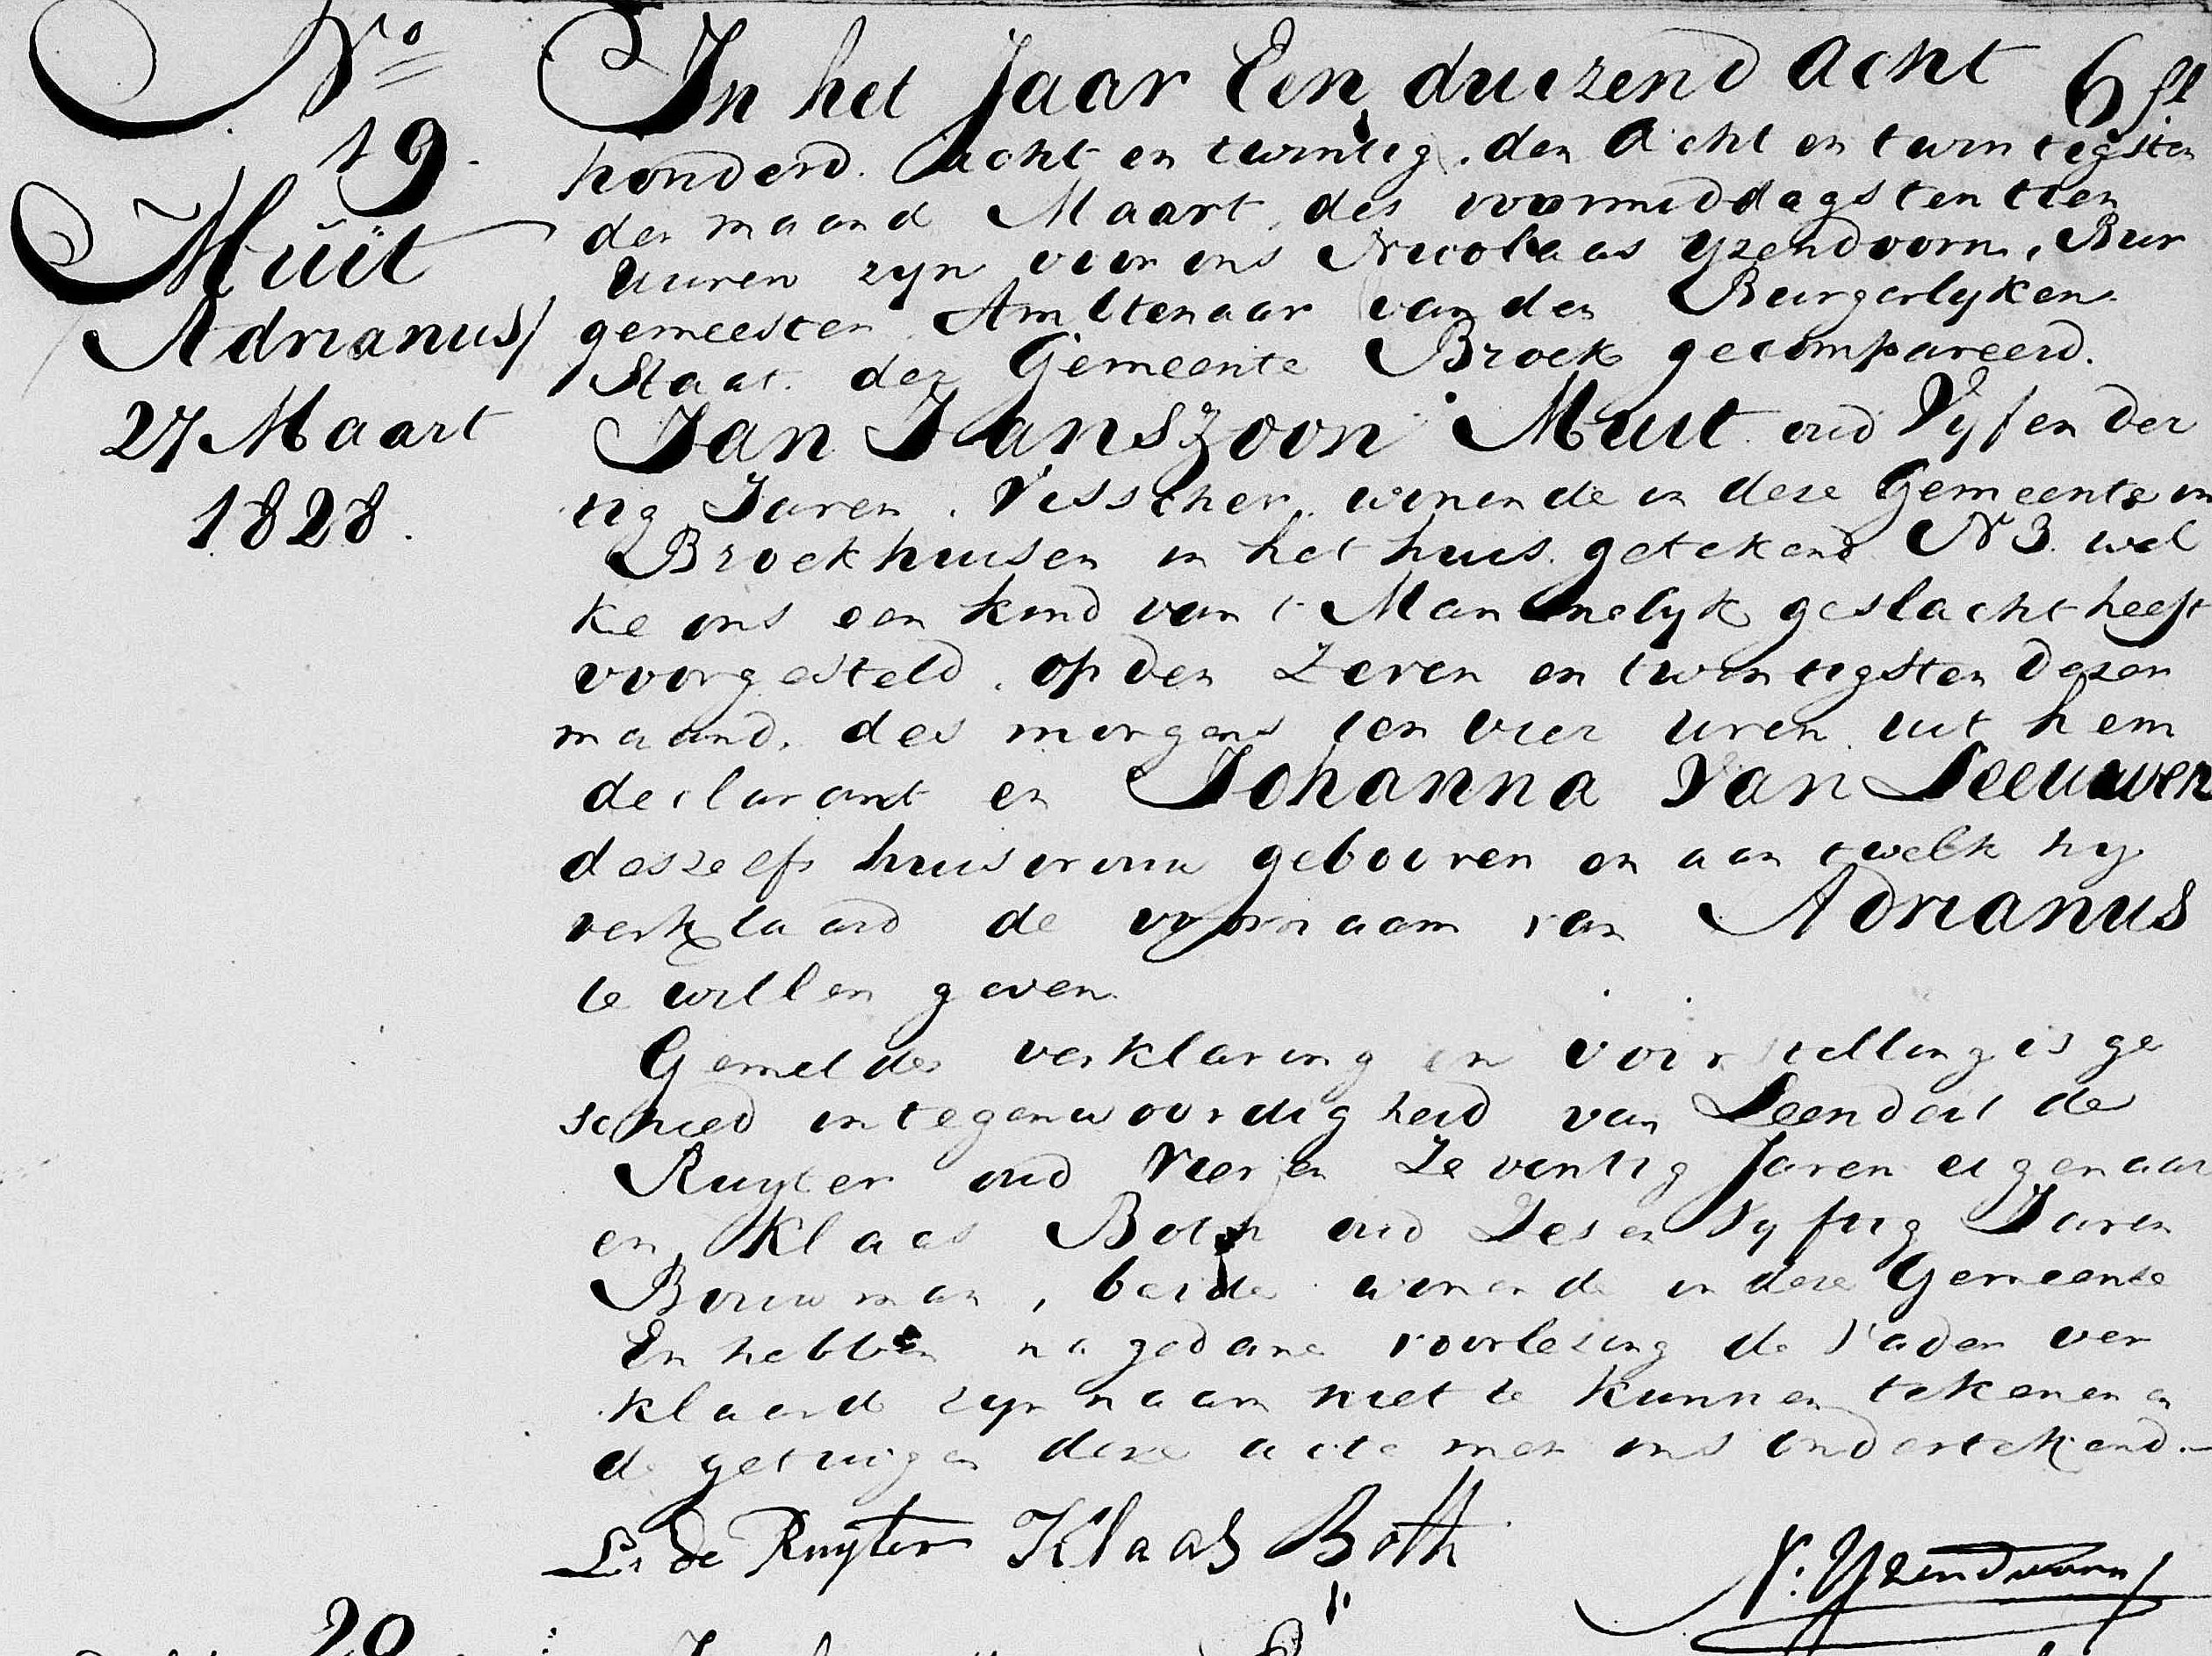 No
19
Muit
Adrianus
27 Maart
1828.
In het Jaar Een duizend Acht
honderd. acht en twintig. den Acht en twintigsten
der maand Maart, des voormiddags ten tien
uuren zyn voor ons Nicolaas Yzendoorn, Bur
gemeester Ambtenaar van den Burgerlyken
Staat. der Gemeente Broek gecompareerd.
Jan Janszoon Muit oud Vyf en der
tig Jaren. Visscher. wonende in deze Gemeente in
Broekhuisen in het huis. getekend N 3. wel
ke ons een kind van t Mannelyk geslacht heeft
voorgesteld. op den Zeven en twintigsten dezer
maand. des morgens ten vier uren. uit hem
declarant en Johanna Van Leeuwen
deszelfs huisvrouw gebooren en aan twelk hy
verklaard de voornaam van Adrianus
te willen geven.
Gemelde verklaring en voorstelling is ge
schied in tegenwoordigheid van Leendert de
Ruyter oud Vier en Zeventig Jaren eigenaar
en Klaas Both oud Zes en Vyftig Jaren
Bouwman, beide wonende in deze Gemeente
En hebben na gedane voorlezing de Vader ver
klaard zyn naam niet te kunnen tekenen en
de getuigen deze acte met ons ondertekend.
Ls de Ruyter Klaas Both
N: Yzendoorn
20